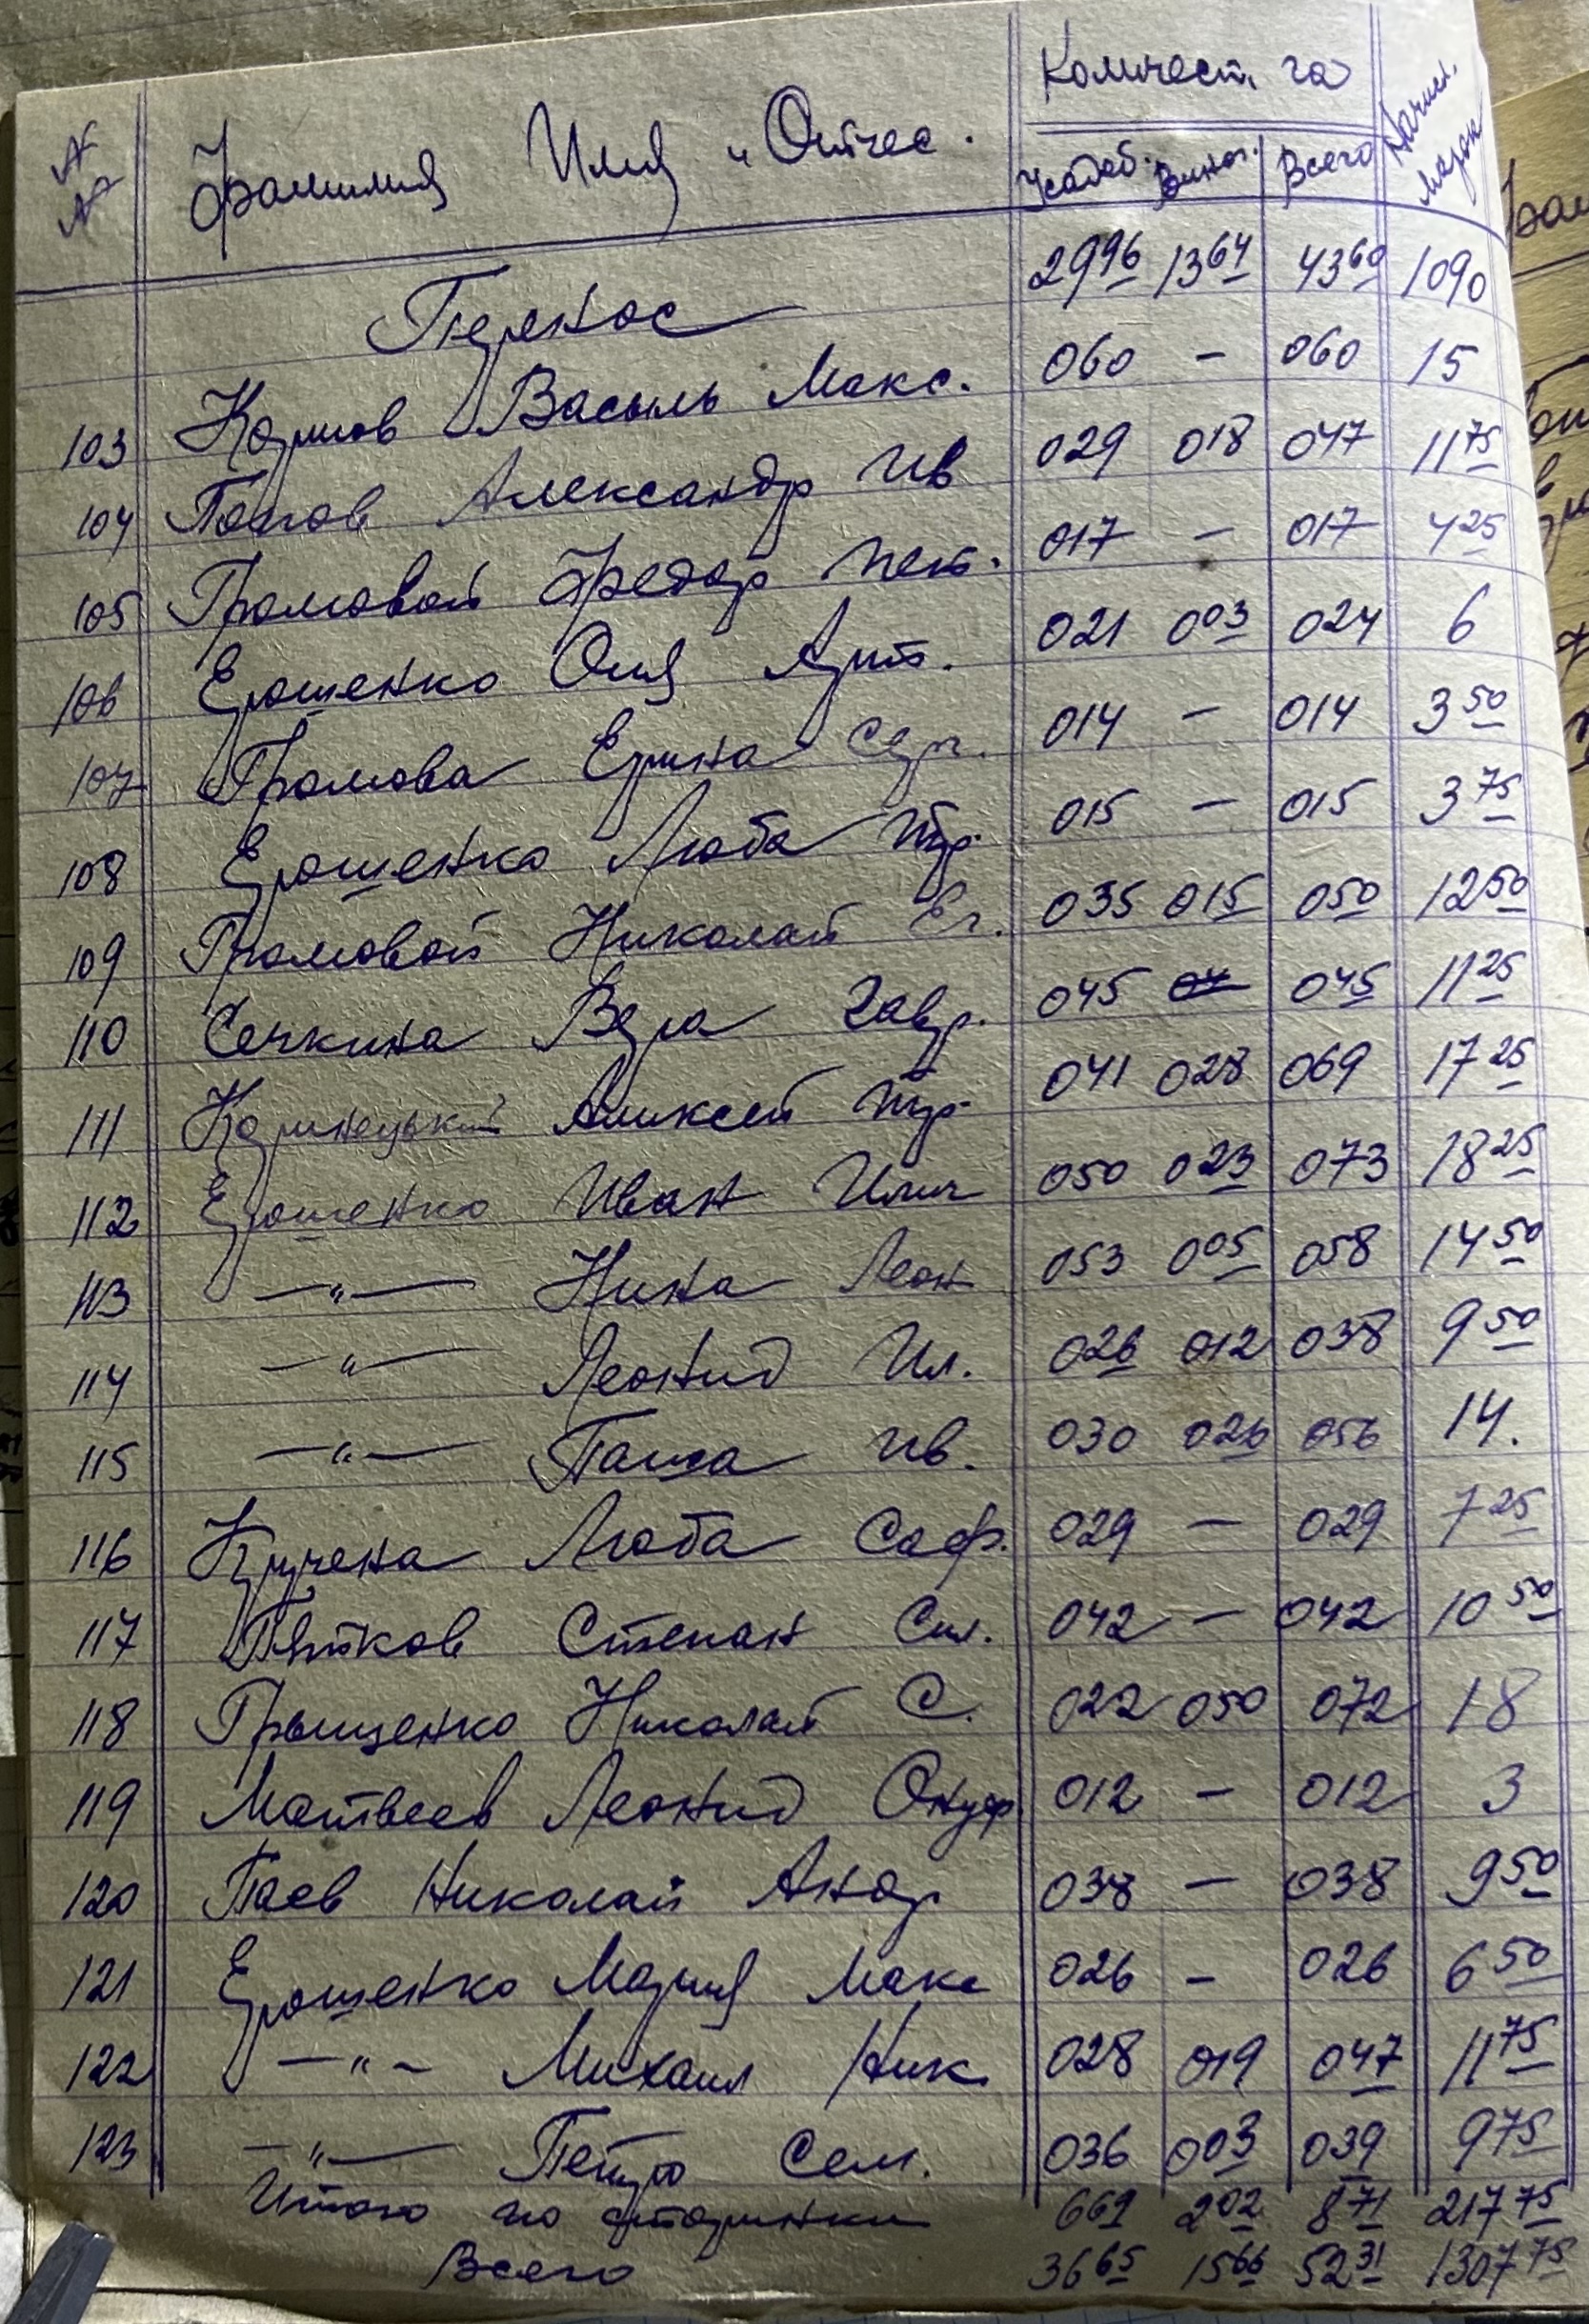 Количест. га
№ № Фамилия Имя и Отчес. Усадеб. Виног. Всего Начисл. марок
Перенос 29 96 13 64 43 60 1090
103 Василь Макс. 060 – 060 15
104 Попов Александр Ив 029 018 047 11 75
105 Громовой Федор 017 – 017 4 25
106 Ерошенко Оля Арт. 021 003 024 6
107 Громова Ерина Серг. 014 – 014 3 50
108 Ерошенко Люба Гр. 015 – 015 3 75
109 Громовой Николай Ег. 035 015 050 12 50
110 Сечкина Вера Гавр. 045 045 11 25
111 Аликсей Гр. 041 028 069 17 25
112 Ерошенко Иван Илич 050 023 073 18 25
113 —"— Нина Леон 053 005 058 14 50
114 —"— Леонид Ил. 026 012 038 9 50
115 —"— Паша Ив. 030 026 056 14.
116 Кручена Люба Саф. 029 – 029 7 25
117 Пятков Степан Сил. 042 – 042 10 50
118 Грыщенко Николай С. 022 050 072 18
119 Матвеев Леонид Онуф. 012 – 012 3
120 Паев Николай Андр 038 – 038 9 50
121 Ерошенко Мария Макс 026 – 026 6 50
122 —"– Михаил Ник. 028 019 047 11 75
123 —"— Петро Сем. 036 003 039 9 75
Итого по сторинки 669 202 8 71 217 75
Всего 36 65 15 66 52 31 1307 75